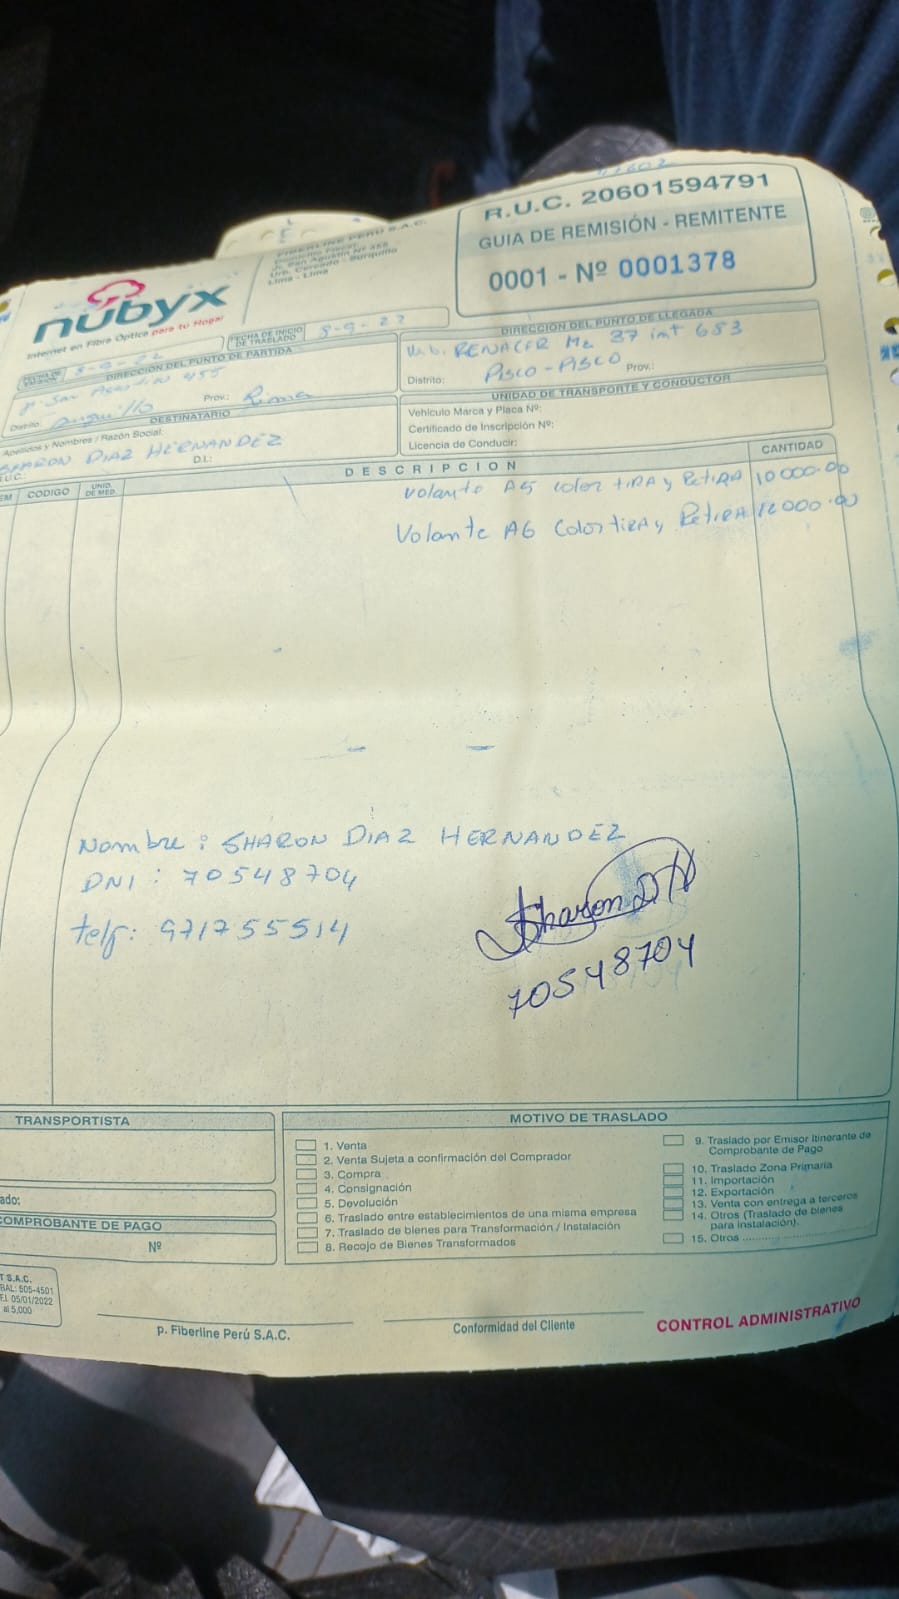 nubyx
Internet en Fibra Optica para tu Hogar
FIBERLINE PERU S.A.C.
Domicilio Fiscal:
Jr. San Agustin Nº 455
Urb. Cercado - Surquillo
Lima - Lima
R.U.C. 20601594791
GUIA DE REMISIÓN - REMITENTE
0001 - Nº 0001378
8-9-22
FECHA DE INICIO
DE TRASLADO
8-9-22
DIRECCIÓN DEL PUNTO DE PARTIDA
San Agustin 455
Distrito:
Surquillo
Prov.:
Lima
DIRECCIÓN DEL PUNTO DE LLEGADA
Urb. RENACER Mz 37 int 683
Distrito:
PISCO - PISCO
Prov.:
DESTINATARIO
Apellidos y Nombres / Razón Social:
SHARON DIAZ HERNANDEZ
R.U.C.:
D.I.:
UNIDAD DE TRANSPORTE Y CONDUCTOR
Vehículo Marca y Placa Nº:
Certificado de Inscripción Nº:
Licencia de Conducir:
EM
CODIGO
UNID. DE MED.
DESCRIPCION
CANTIDAD
Volante A5 color tira y Retira 10 000.00
Volante A6 Color tira y Retira 12 000.00
Nombre: SHARON DIAZ HERNANDEZ
DNI: 70548704
telf: 971755514
Sharon D H
70548704
TRANSPORTISTA
ado:
COMPROBANTE DE PAGO
Nº
MOTIVO DE TRASLADO
1. Venta
2. Venta Sujeta a confirmación del Comprador
3. Compra
4. Consignación
5. Devolución
6. Traslado entre establecimientos de una misma empresa
7. Traslado de bienes para Transformación / Instalación
8. Recojo de Bienes Transformados
9. Traslado por Emisor Itinerante de
Comprobante de Pago
10. Traslado Zona Primaria
11. Importación
12. Exportación
13. Venta con entrega a terceros
14. Otros (Traslado de bienes
para instalación).
15. Otros ....................
T S.A.C.
RAL: 505-4501
F.I. 05/01/2022
al 5,000
p. Fiberline Perú S.A.C.
Conformidad del Cliente
CONTROL ADMINISTRATIVO